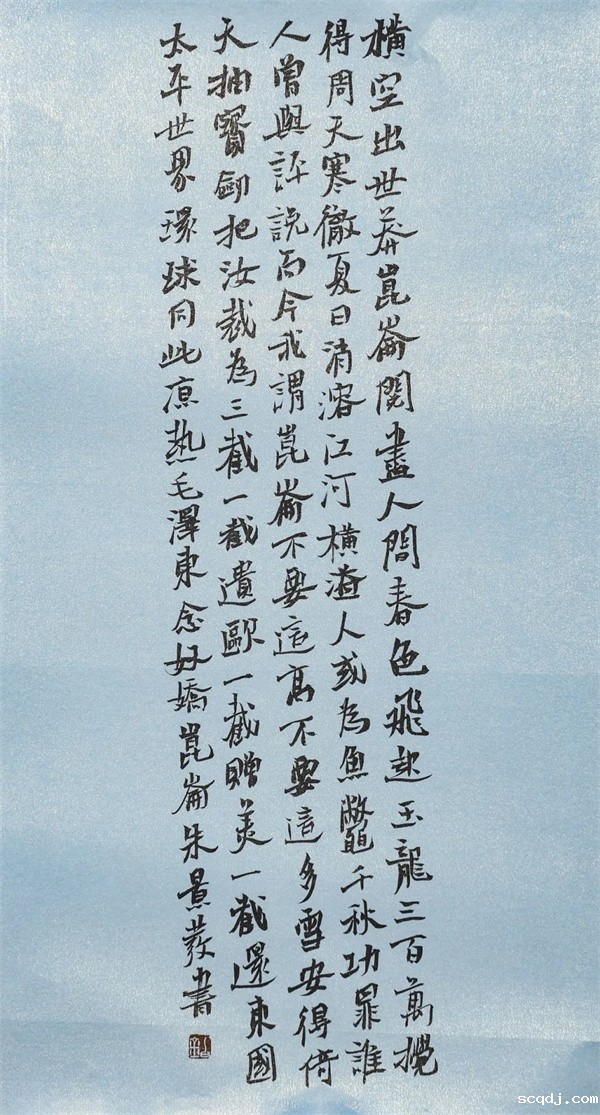 橫空出世莽崑崙閱盡人間春色飛起玉龍三百萬攪
得周天寒徹夏日消溶江河橫溢人或為魚鼈千秋功罪誰
人曾與評說而今我謂崑崙不要這高不要這多雪安得倚
天抽寶劍把汝裁為三截一截遺歐一截贈美一截還東國
太平世界環球同此涼熱毛澤東念奴嬌崑崙朱景書
scqdj.com